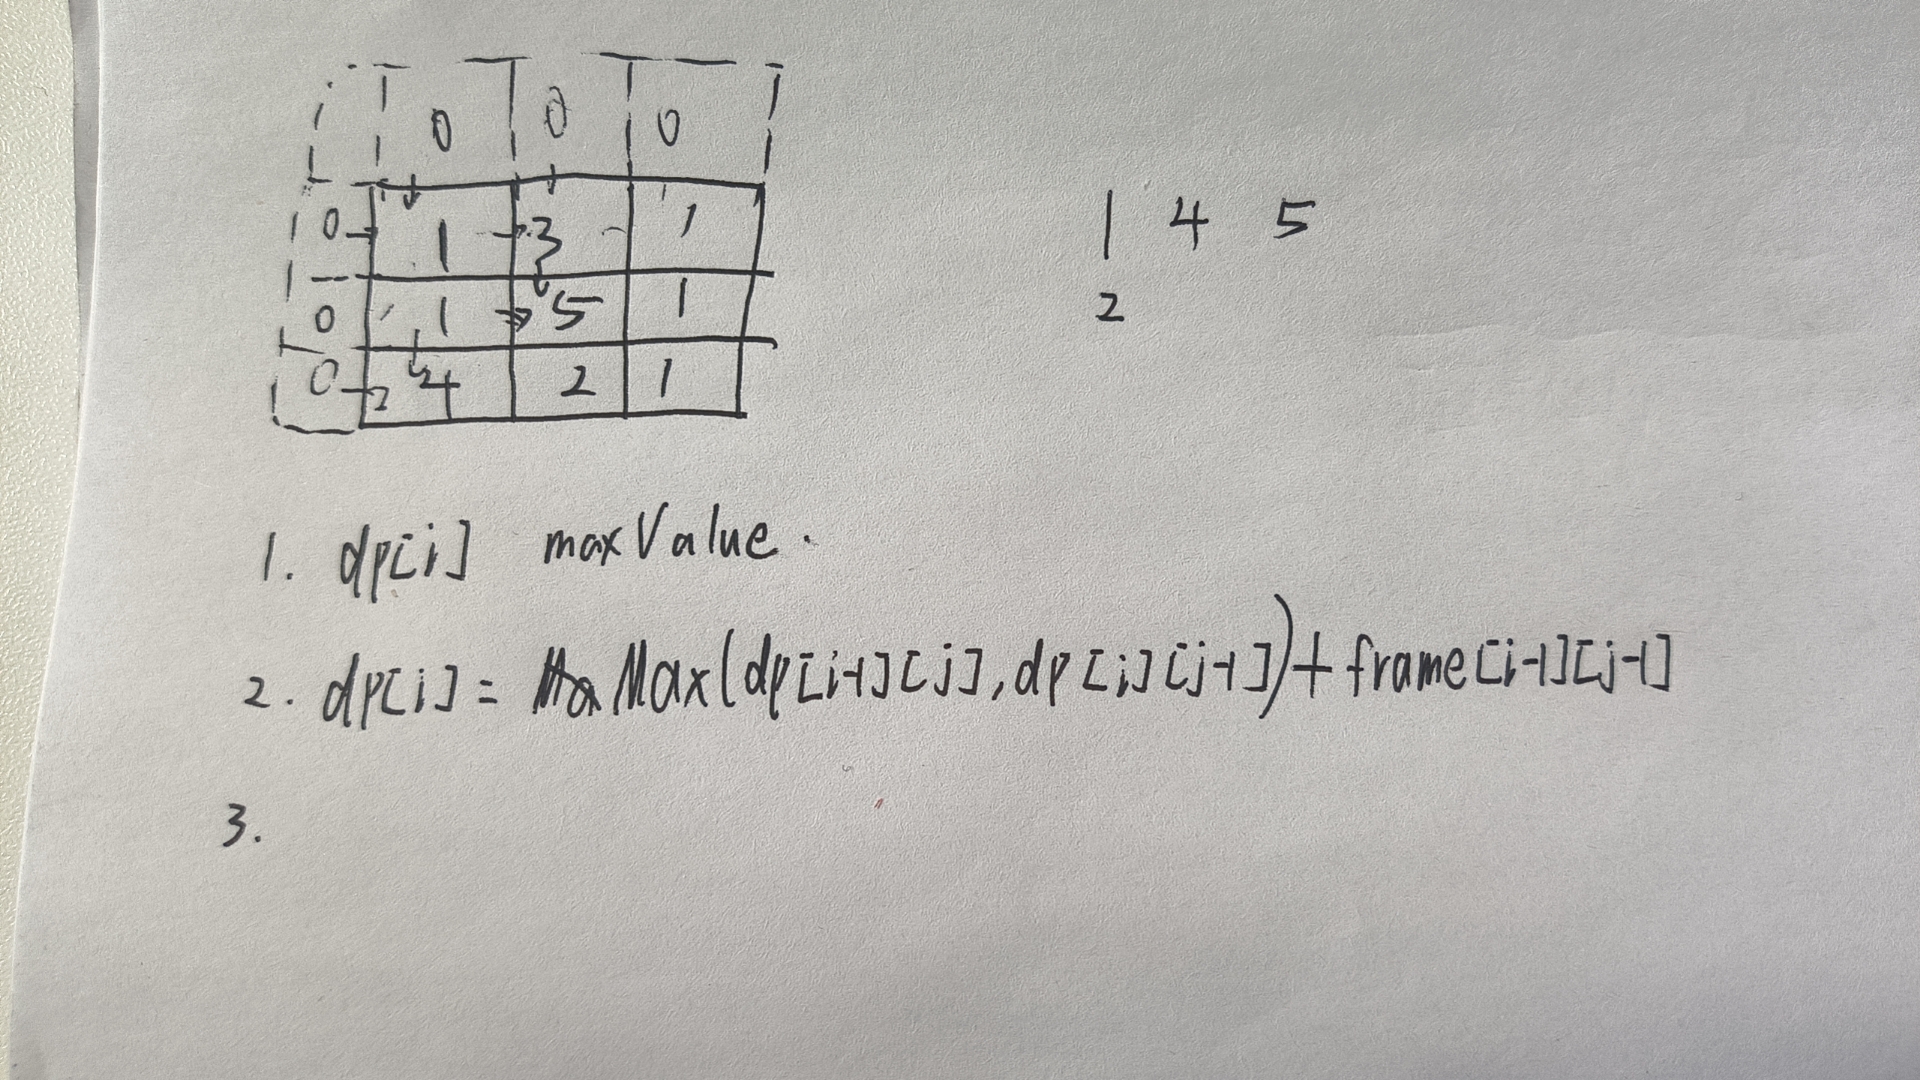 0 0 0
0 1 3 1
0 1 5 1
0 4 2 1
1 4 5
2
1. dp[i] maxValue.
2. dp[i] = Max(dp[i-1][j], dp[i][j-1]) + frame[i-1][j-1]
3.